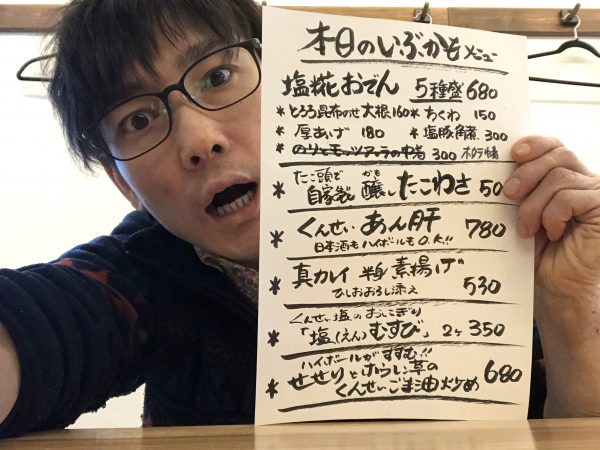 本日のいぶかもメニュー
塩糀おでん 5種盛 680
*とろろ昆布のせ大根160 *ちくわ 150
*厚あげ 180 *塩豚角煮 300
300
たこ頭で
* 自家製 醸し たこわさ 50
かも
* くんせい あん肝 780
日本酒もハイボールもO.K!!
* 真カレイ 半身 素揚げ 530
ひしおおろし添え
くんせい塩のおにぎり
* 「塩(えん)むすび」 2ヶ 350
ハイボールがすすむ!!
* せせりとホウレン草の 680
くんせいごま油炒め